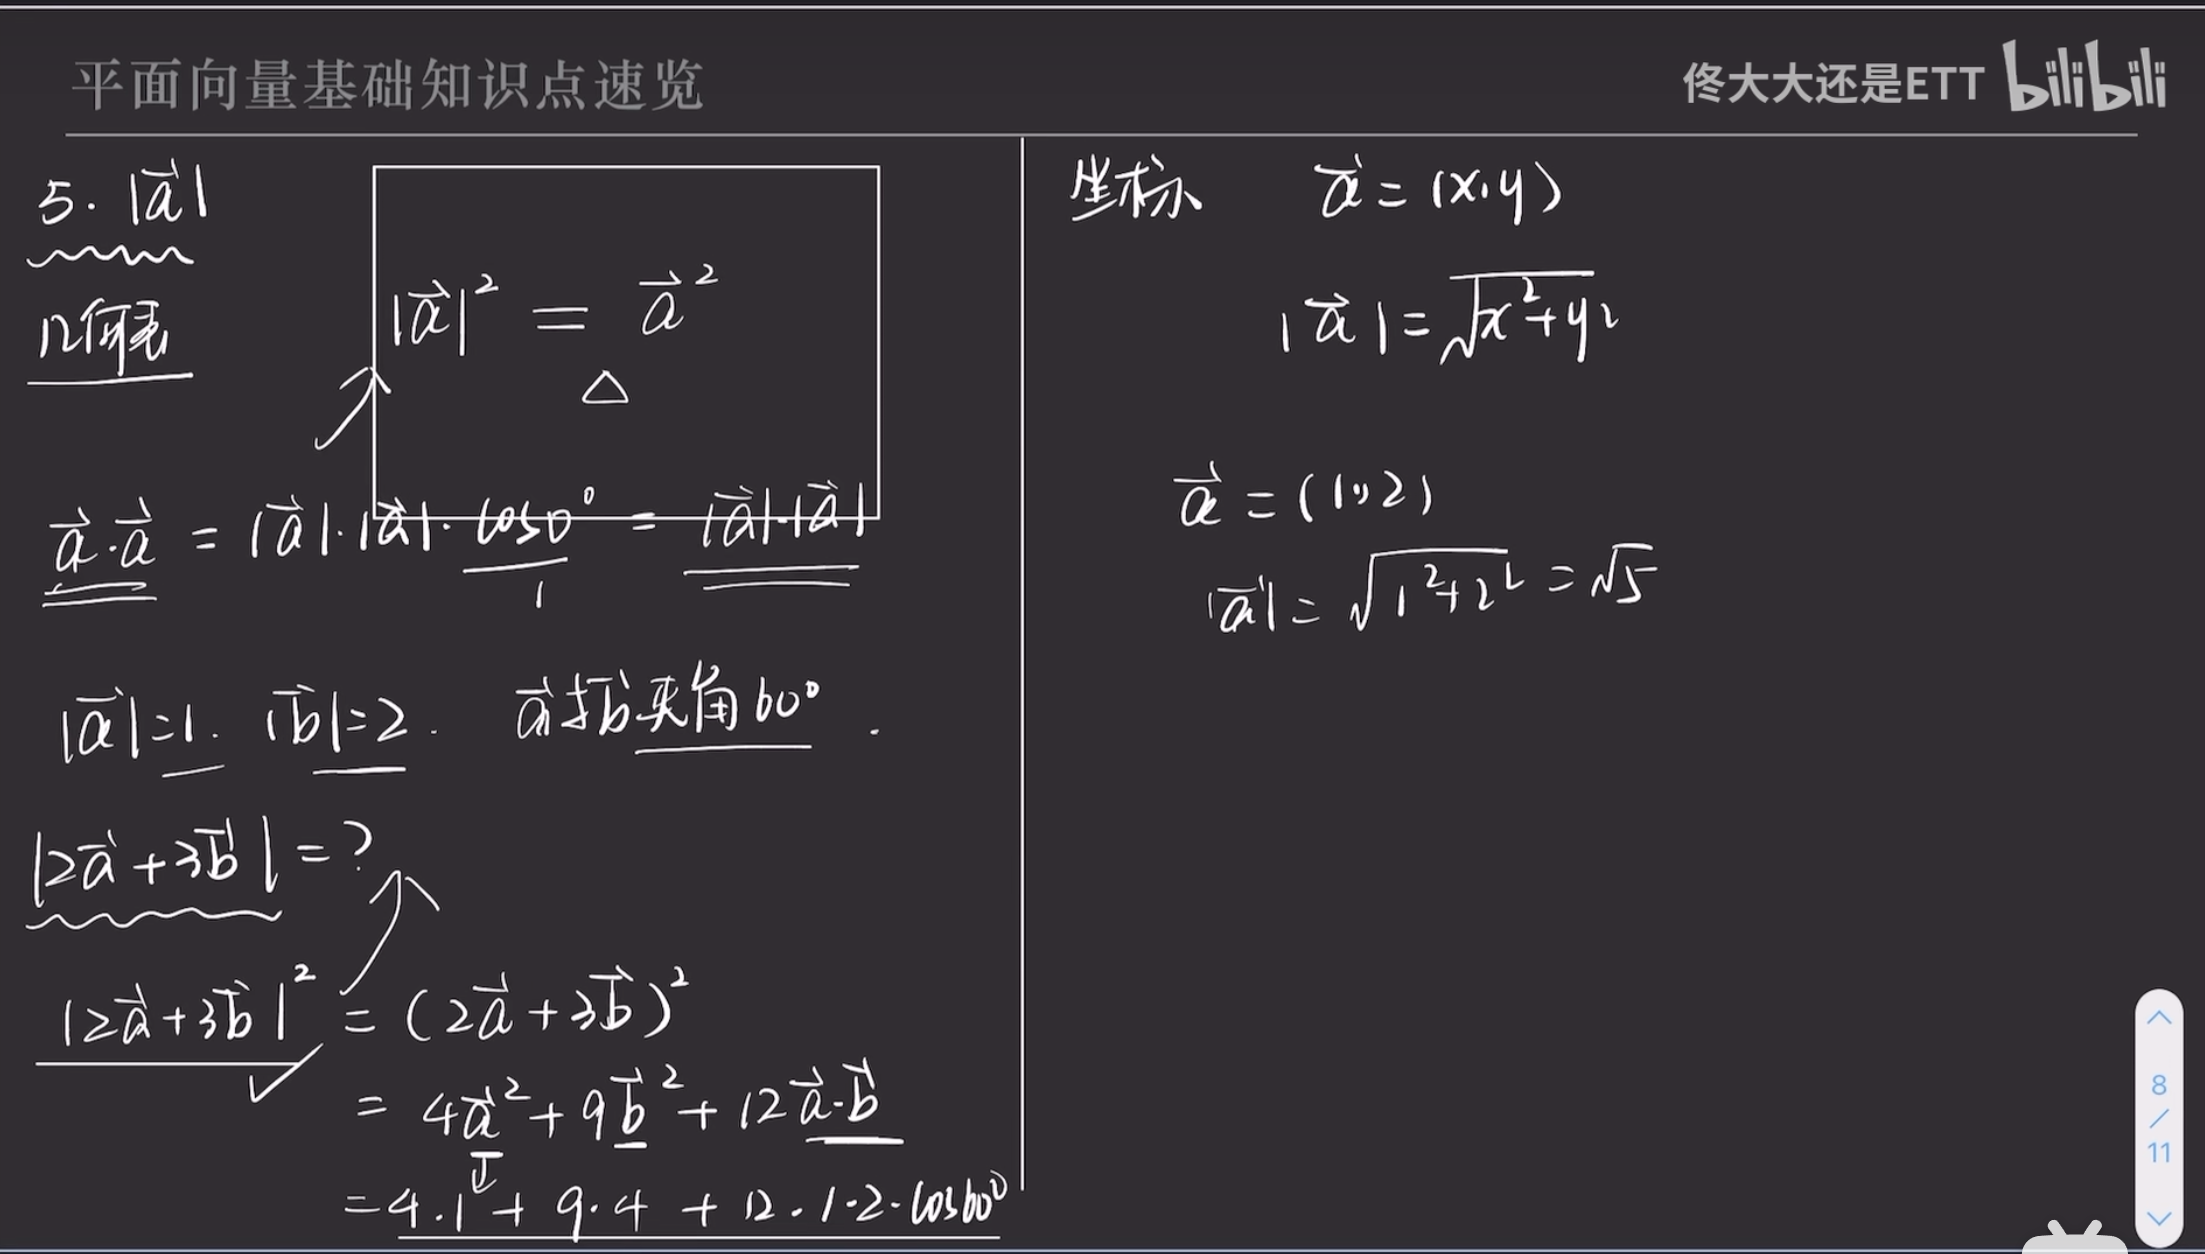 平面向量基础知识点速览
佟大大还是ETT bilibili
5. |a⃗|
几何意
|a⃗|² = a⃗²
△
a⃗·a⃗ = |a⃗|·|a⃗|·cos0° = |a⃗|·|a⃗|
1
|a⃗|=1. |b⃗|=2. a⃗与b⃗夹角60°.
|2a⃗+3b⃗|=?
|2a⃗+3b⃗|² = (2a⃗+3b⃗)²
= 4a⃗²+9b⃗²+12a⃗·b⃗
=4·1²+9·4+12·1·2·cos60°
坐标 a⃗=(x,y)
|a⃗|=√x²+y²
a⃗=(1,2)
|a⃗|=√1²+2²=√5
8
/
11